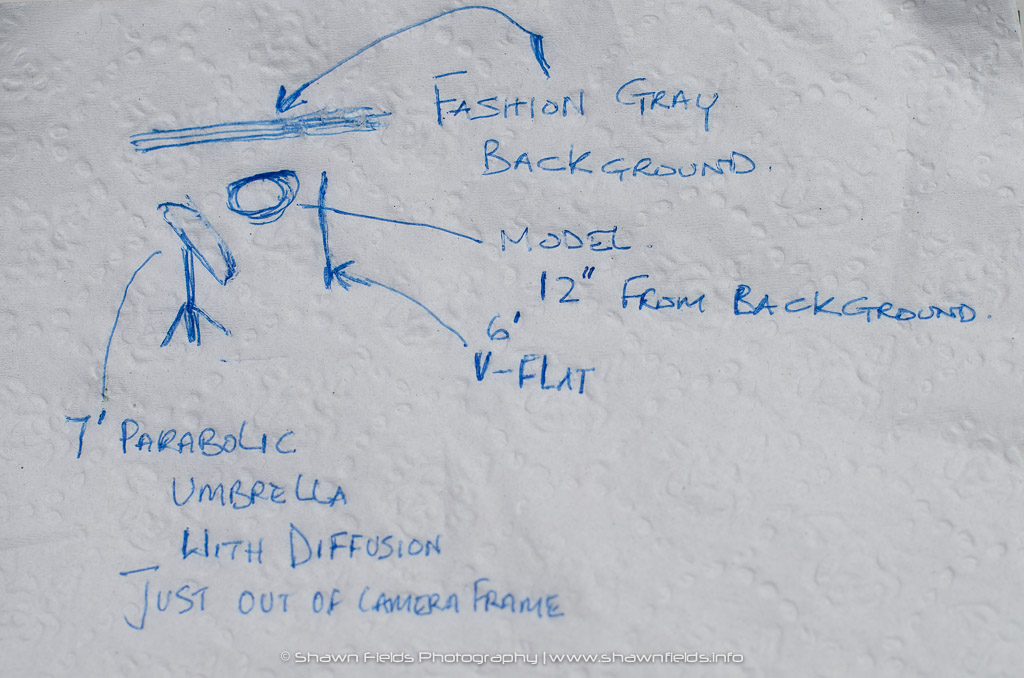 FASHION GRAY
BACKGROUND.
MODEL.
12" FROM BACKGROUND.
6'
V-FLAT
7' PARABOLIC
UMBRELLA
WITH DIFFUSION
JUST OUT OF CAMERA FRAME
© Shawn Fields Photography | www.shawnfields.info